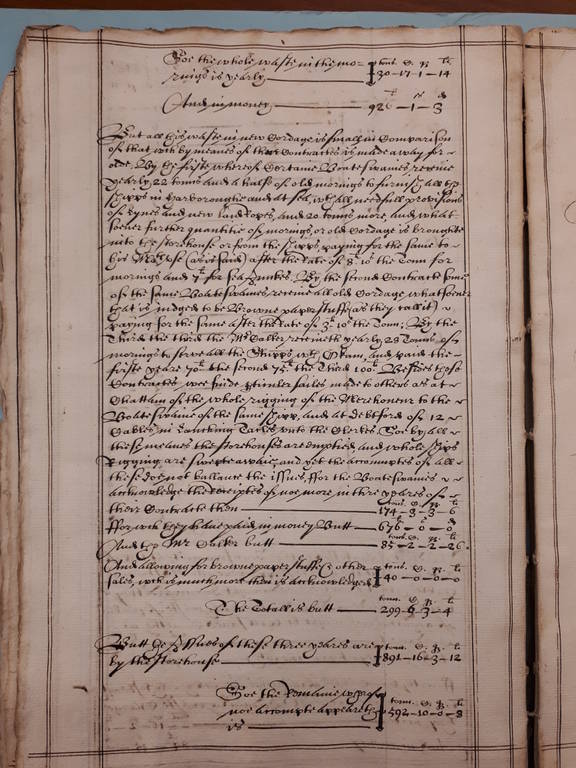 Soe the whole waste in the mo=
rings is yearly — tonn. C. q. lb 30-17-1-14
And in money — £ s d 926-1-3
But all this waste in new Cordage is small in Comparison
of that wch by meanes of their Contractes is made away for
olde. By the firste whereof Certaine Boateswaines receive
yearly 22 tonns and a halfe of old morings to furnish all the
shipps in harboroughe and at sea, wth all needfull provisions
of and new landropes, and 20 tonns more, and what
soever further quantitie of morings, or old Cordage is broughte
into the storehouse or from the shipps, paying for the same to
his Matie use (as is said) after the rate of 8£ 10s the Tonn for
morings and 7£ for sea Junkes. By the second Contracte some
of the same Boateswaines receive all old Cordage whatsoever
that is judged to be Browne paper stuffe (as they call it)
paying for the same after the rate of 3£ 10s the Tonn. By the
Third the third the Mr Calker receiveth yearly 29 Tonns of
morings to serve all the Shipps wth Ocam, and paid the
firste yeare 70£ the second 75£ the Third 100£ Besides these
Contractes were made other sailes made to others as at
Chattam of the whole rigging of the Merehoneur to the
Boateswaine of the same shipp, and at Debtford of 12
Cables in Tackes unto the Clerkes. Soe by all
these meanes the storehouses are emptied, and whole ships
Rigging, are swepte awaie, and yet the accomptes of all
these doe not ballance the issues, ffor the Boateswaines
acknowledge the receiptes of noe more in three yeares of
their Contracte then — tonn. C. q. lb 174-3-3-6
ffor wch they have paid in money Butt — £ s d 676-0-0
And the Mr Calker butt — tonn. C. q. lb 85-2-2-26.
And allowing for browne paper stuffe & other
sales, wch is much more then is acknowledged — tonn. C. q. lb 40-0-0-0
The Totall is butt — tonn. C. q. lb 299-6-3-4
Butt the Issues of these three yeares are
by the storehouse — tonn. C. q. lb 891-16-3-12
Soe the Remaine whereof
noe accompte appeareth
is — tonn. C. q. lb 592-10-0-8